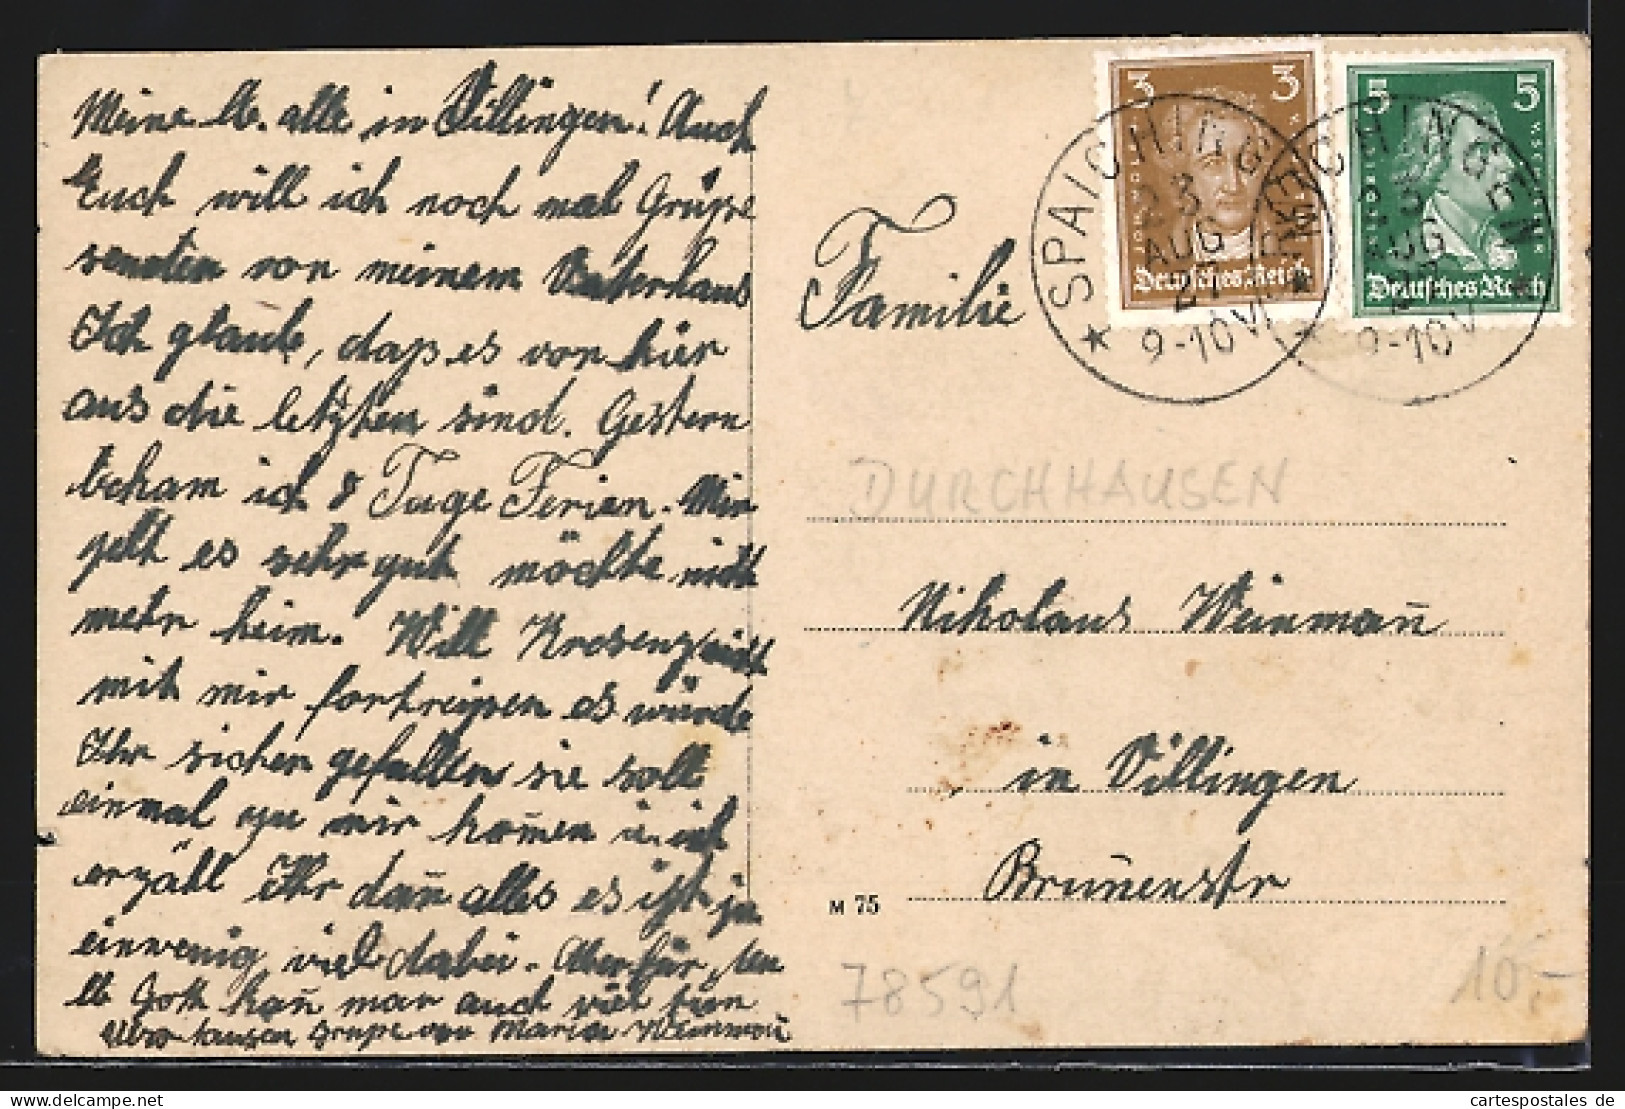 Meine lb. alle in Villingen! Auch
Euch will ich noch mal Grüße
senden von meinem Vaterhaus
Ich glaube, daß es von hier
aus die letzten sind. Gestern
bekam ich 8 Tage Ferien. Mir
gelt es sehr gut möchte nicht
mehr heim. Will Kresenz nicht
mit mir fortreißen es würde
Ihr sicher gefallen sie soll
einmal zu mir kom̄en u. ich
erzähl Ihr dan̄ alles es ist ja
einwenig viel dabei. Aber für den
lb Gott kan̄ man auch viel tun
Grüße von Maria Weinman̄
Familie
DURCHHAUSEN
Nikolaus Weinman̄
in Villingen
Brun̄enstr
M 75
78591
10,-
3 3
Deutsches Reich
5 5
F. v. SCHILLER
Deutsches Reich
SPAICHINGEN
23
AUG
27
9-10 V
SPAICHINGEN
23
AUG
27
9-10 V
(c) cartespostales.de
cartespostales de